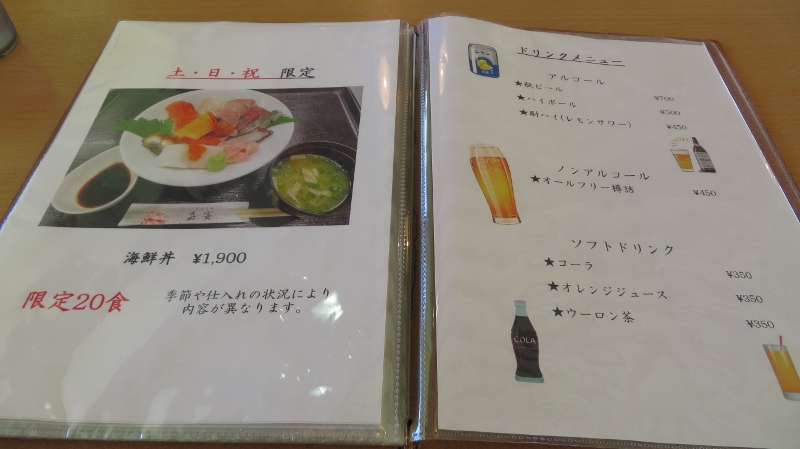 土・日・祝 限定
海鮮丼 ¥1,900
限定20食
季節や仕入れの状況により
内容が異なります。
ドリンクメニュー
アルコール
★瓶ビール ¥700
★ハイボール ¥500
★酎ハイ(レモンサワー) ¥450
ノンアルコール
★オールフリー樽詰 ¥450
ソフトドリンク
★コーラ ¥350
★オレンジジュース ¥350
★ウーロン茶 ¥350
COLA